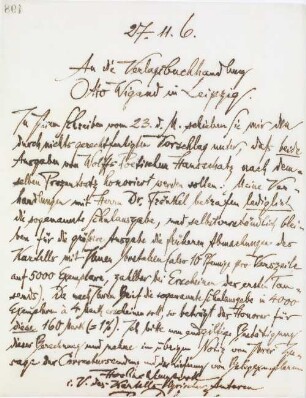 27. 11. 6.
An die Verlagsbuchhandlung
Otto Wigand in Leipzig.
In Ihrem Schreiben vom 23. d. M. schieben Sie mir den
durch nichts gerechtfertigten Vorschlag unter, daß beide
Ausgaben von Wolffs Poetischem Hausschatz nach dem-
selben Prozentsatz honoriert werden sollen. Meine Ver-
handlungen mit Herrn Dr. Fränkel betrafen lediglich
die sogenannte Schulausgabe, und selbstverständlich blei-
ben für die größere Ausgabe die früheren Abmachungen des
Kartells mit Ihnen bestehen (also 15 Pfennige pro Verszeile
auf 5000 Exemplare, zahlbar bei Erscheinen der ersten Tau-
sends). Da nach Ihrem Brief die sogenannte Schulausgabe in 4000
Exemplaren à 4 Mark erscheinen soll, so beträgt das Honorar für
diese 160 Mark (= 1%). Ich bitte um endgültige Bestätigung
dieser Berechnung und nehme im Übrigen Notiz von Ihrer Zu-
sage der Correctursendung und der Lieferung von Belegexemplaren
i. V. des Kartells lyrischer Autoren